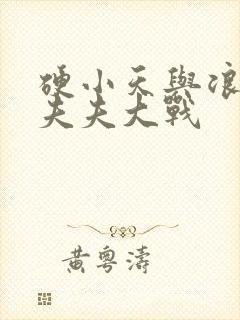 硬小天與
夫夫大戰
黃粵濤